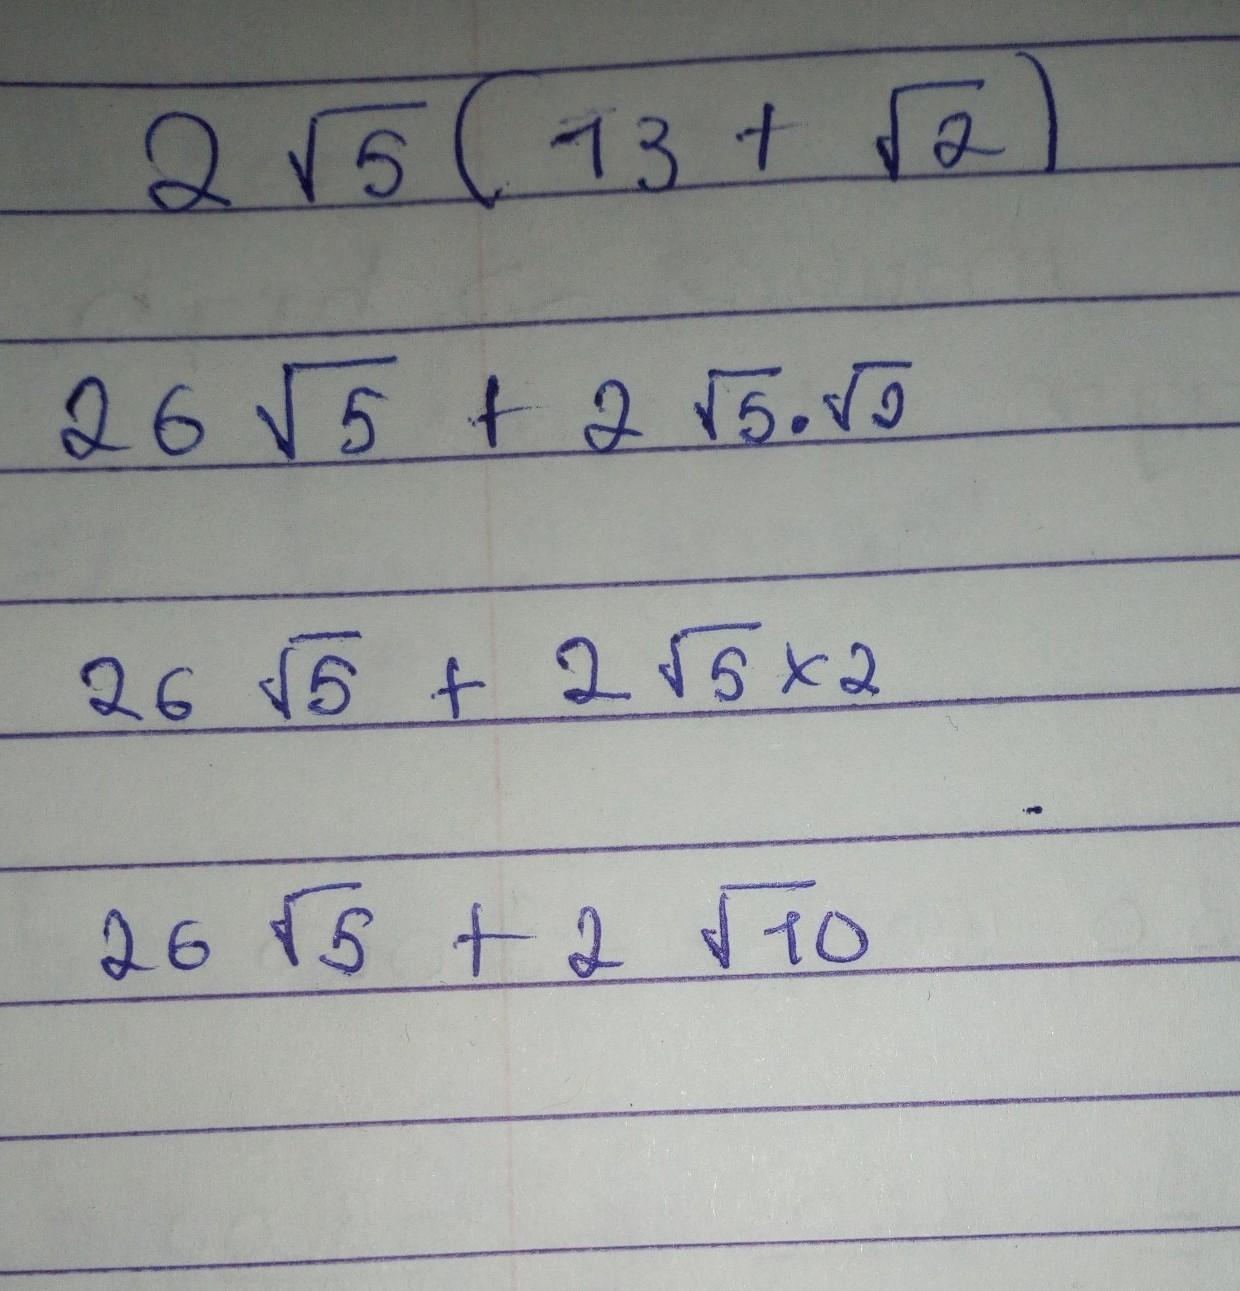 2 √5 ( 13 + √2 )
26 √5 + 2 √5 . √2
26 √5 + 2 √5 x 2
26 √5 + 2 √10